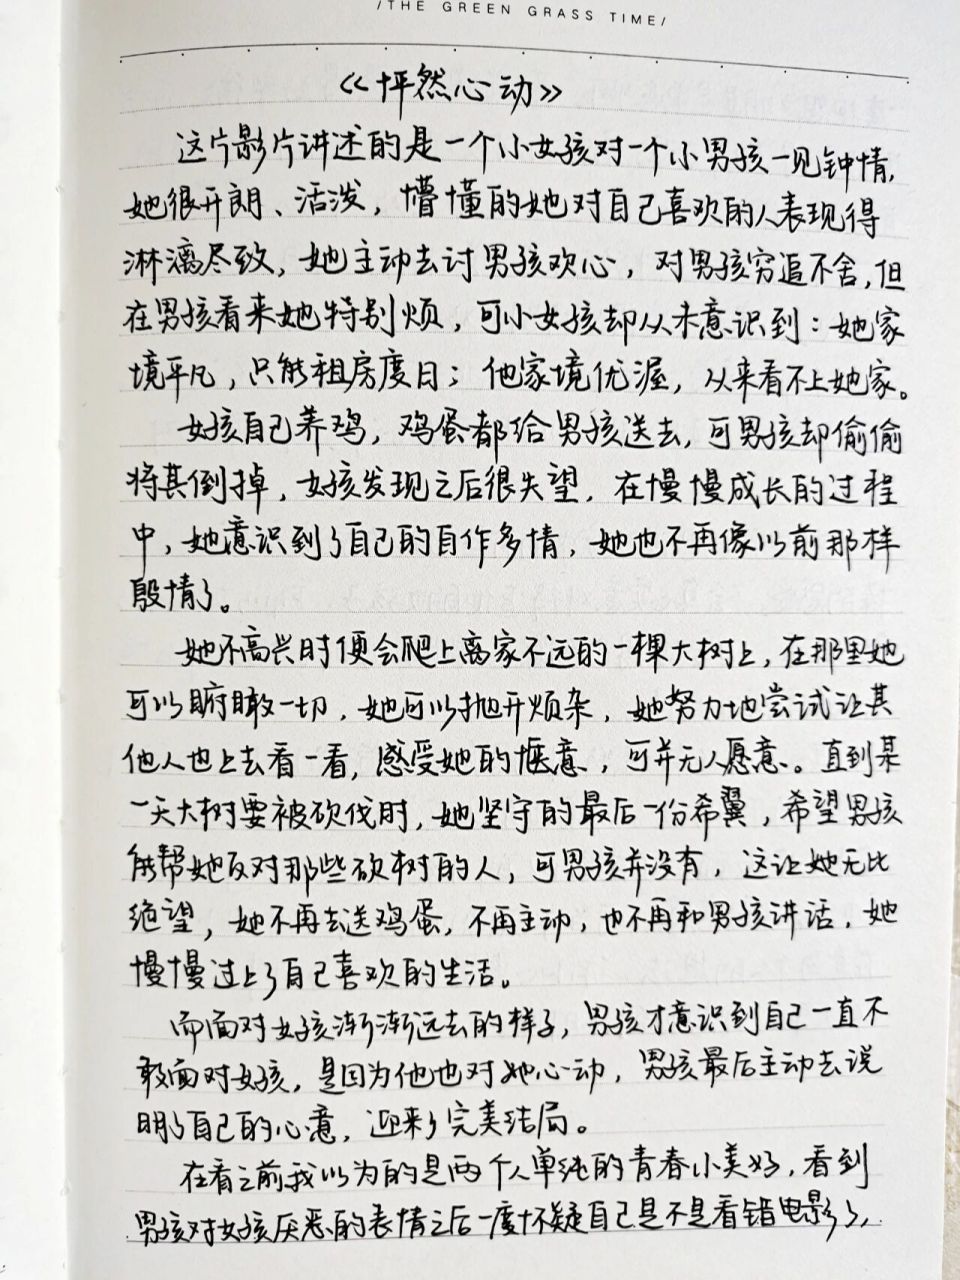 /THE GREEN GRASS TIME/
《怦然心动》
这片影片讲述的是一个小女孩对一个小男孩一见钟情,
她很开朗、活泼,懵懂的她对自己喜欢的人表现得
淋漓尽致,她主动去讨男孩欢心,对男孩穷追不舍,但
在男孩看来她特别烦,可小女孩却从未意识到:她家
境平凡,只能租房度日;他家境优渥,从来看不上她家。
女孩自己养鸡,鸡蛋都给男孩送去,可男孩却偷偷
将其倒掉,女孩发现之后很失望,在慢慢成长的过程
中,她意识到了自己的自作多情,她也不再像以前那样
殷情了。
她不高兴时便会爬上离家不远的一棵大树上,在那里她
可以瞰一切,她可以抛开烦杂,她努力地尝试让其
他人也上去看一看,感受她的惬意,可并无人愿意。直到某
一天大树要被砍伐时,她坚守的最后一份希翼,希望男孩
能帮她反对那些砍树的人,可男孩并没有,这让她无比
绝望,她不再去送鸡蛋,不再主动,也不再和男孩讲话,她
慢慢过上了自己喜欢的生活。
而面对女孩渐渐远去的样子,男孩才意识到自己一直不
敢面对女孩,是因为他也对她心动,男孩最后主动去说
明了自己的心意,迎来了完美结局。
在看之前我以为的是两个人单纯的青春小美好,看到
男孩对女孩厌恶的表情之后一度怀疑自己是不是看错电影了,